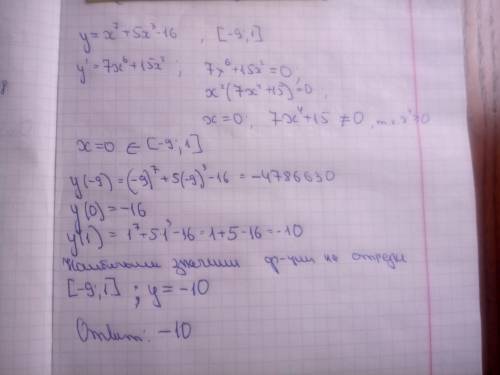 y = x⁷+5x³-16 , [-9; 1]
y' = 7x⁶+15x² ; 7x⁶+15x² = 0,
x²(7x⁴+15)=0,
x=0, 7x⁴+15 ≠ 0, т.к x⁴≥0
x=0 ∈ [-9; 1]
y(-9) = (-9)⁷+5(-9)³-16 = -4786630
y(0) = -16
y(1) = 1⁷+5·1³-16 = 1+5-16 = -10
Наибольшее значение ф-ции на отрезке
[-9; 1] ; y = -10
Ответ: -10